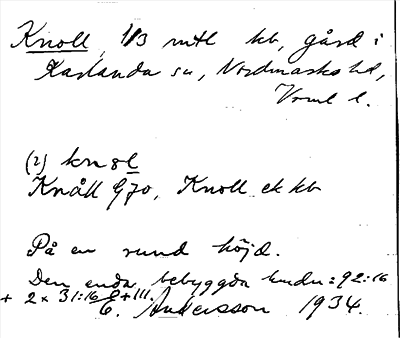 Knoll, 1/3 mtl kb, gård i
Karlanda sn, Nordmarks hd,
Vrml l.
(2) knɷl
Knåll G70, Knoll ek kb
På en rund höjd.
Den enda bebyggda 92:16
+ 2 x 31:16 + III.
E. Andersson 1934.